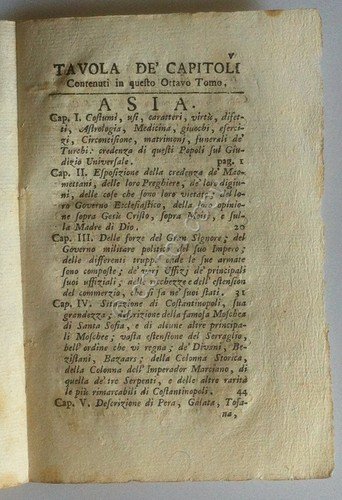 v
TAVOLA DE' CAPITOLI
Contenuti in questo Ottavo Tomo.
ASIA.
Cap. I. Costumi, usi, caratteri, virtù, difet-
ti, Astrologia, Medicina, giuochi, eserci-
zi, Circoncisione, matrimonj, funerali de'
Turchi: credenza di questi Popoli sul Giu-
dizio Universale. pag. 1
Cap. II. Esposizione della credenza de' Mao-
mettani, delle loro Preghiere, de' loro digiu-
ni, delle cose che sono loro vietate; del lo-
ro Governo Ecclesiastico, della loro opinio-
ne sopra Gesù Cristo, sopra Moisè, e sul-
la Madre di Dio. 20
Cap. III. Delle forze del Gran Signore; del
Governo militare politico del suo Impero;
delle differenti truppe onde le sue armate
sono composte; de' varj Uffizj de' principali
suoi uffiziali, delle ricchezze e dell'estension
del commerzio, che si fa ne' suoi stati. 31
Cap. IV. Situazione di Costantinopoli, sua
grandezza; descrizione della famosa Moschea
di Santa Sofia, e di alcune altre principa-
li Moschee; vasta estensione del Serraglio,
bell'ordine che vi regna; de' Divani, Be-
zistani, Bazaars; della Colonna Storica,
della Colonna dell'Imperador Marciano, di
quella de' tre Serpenti, e delle altre rarità
le più rimarcabili di Costantinopoli. 44
Cap. V. Descrizione di Pera, Galata, Tofa-
na,